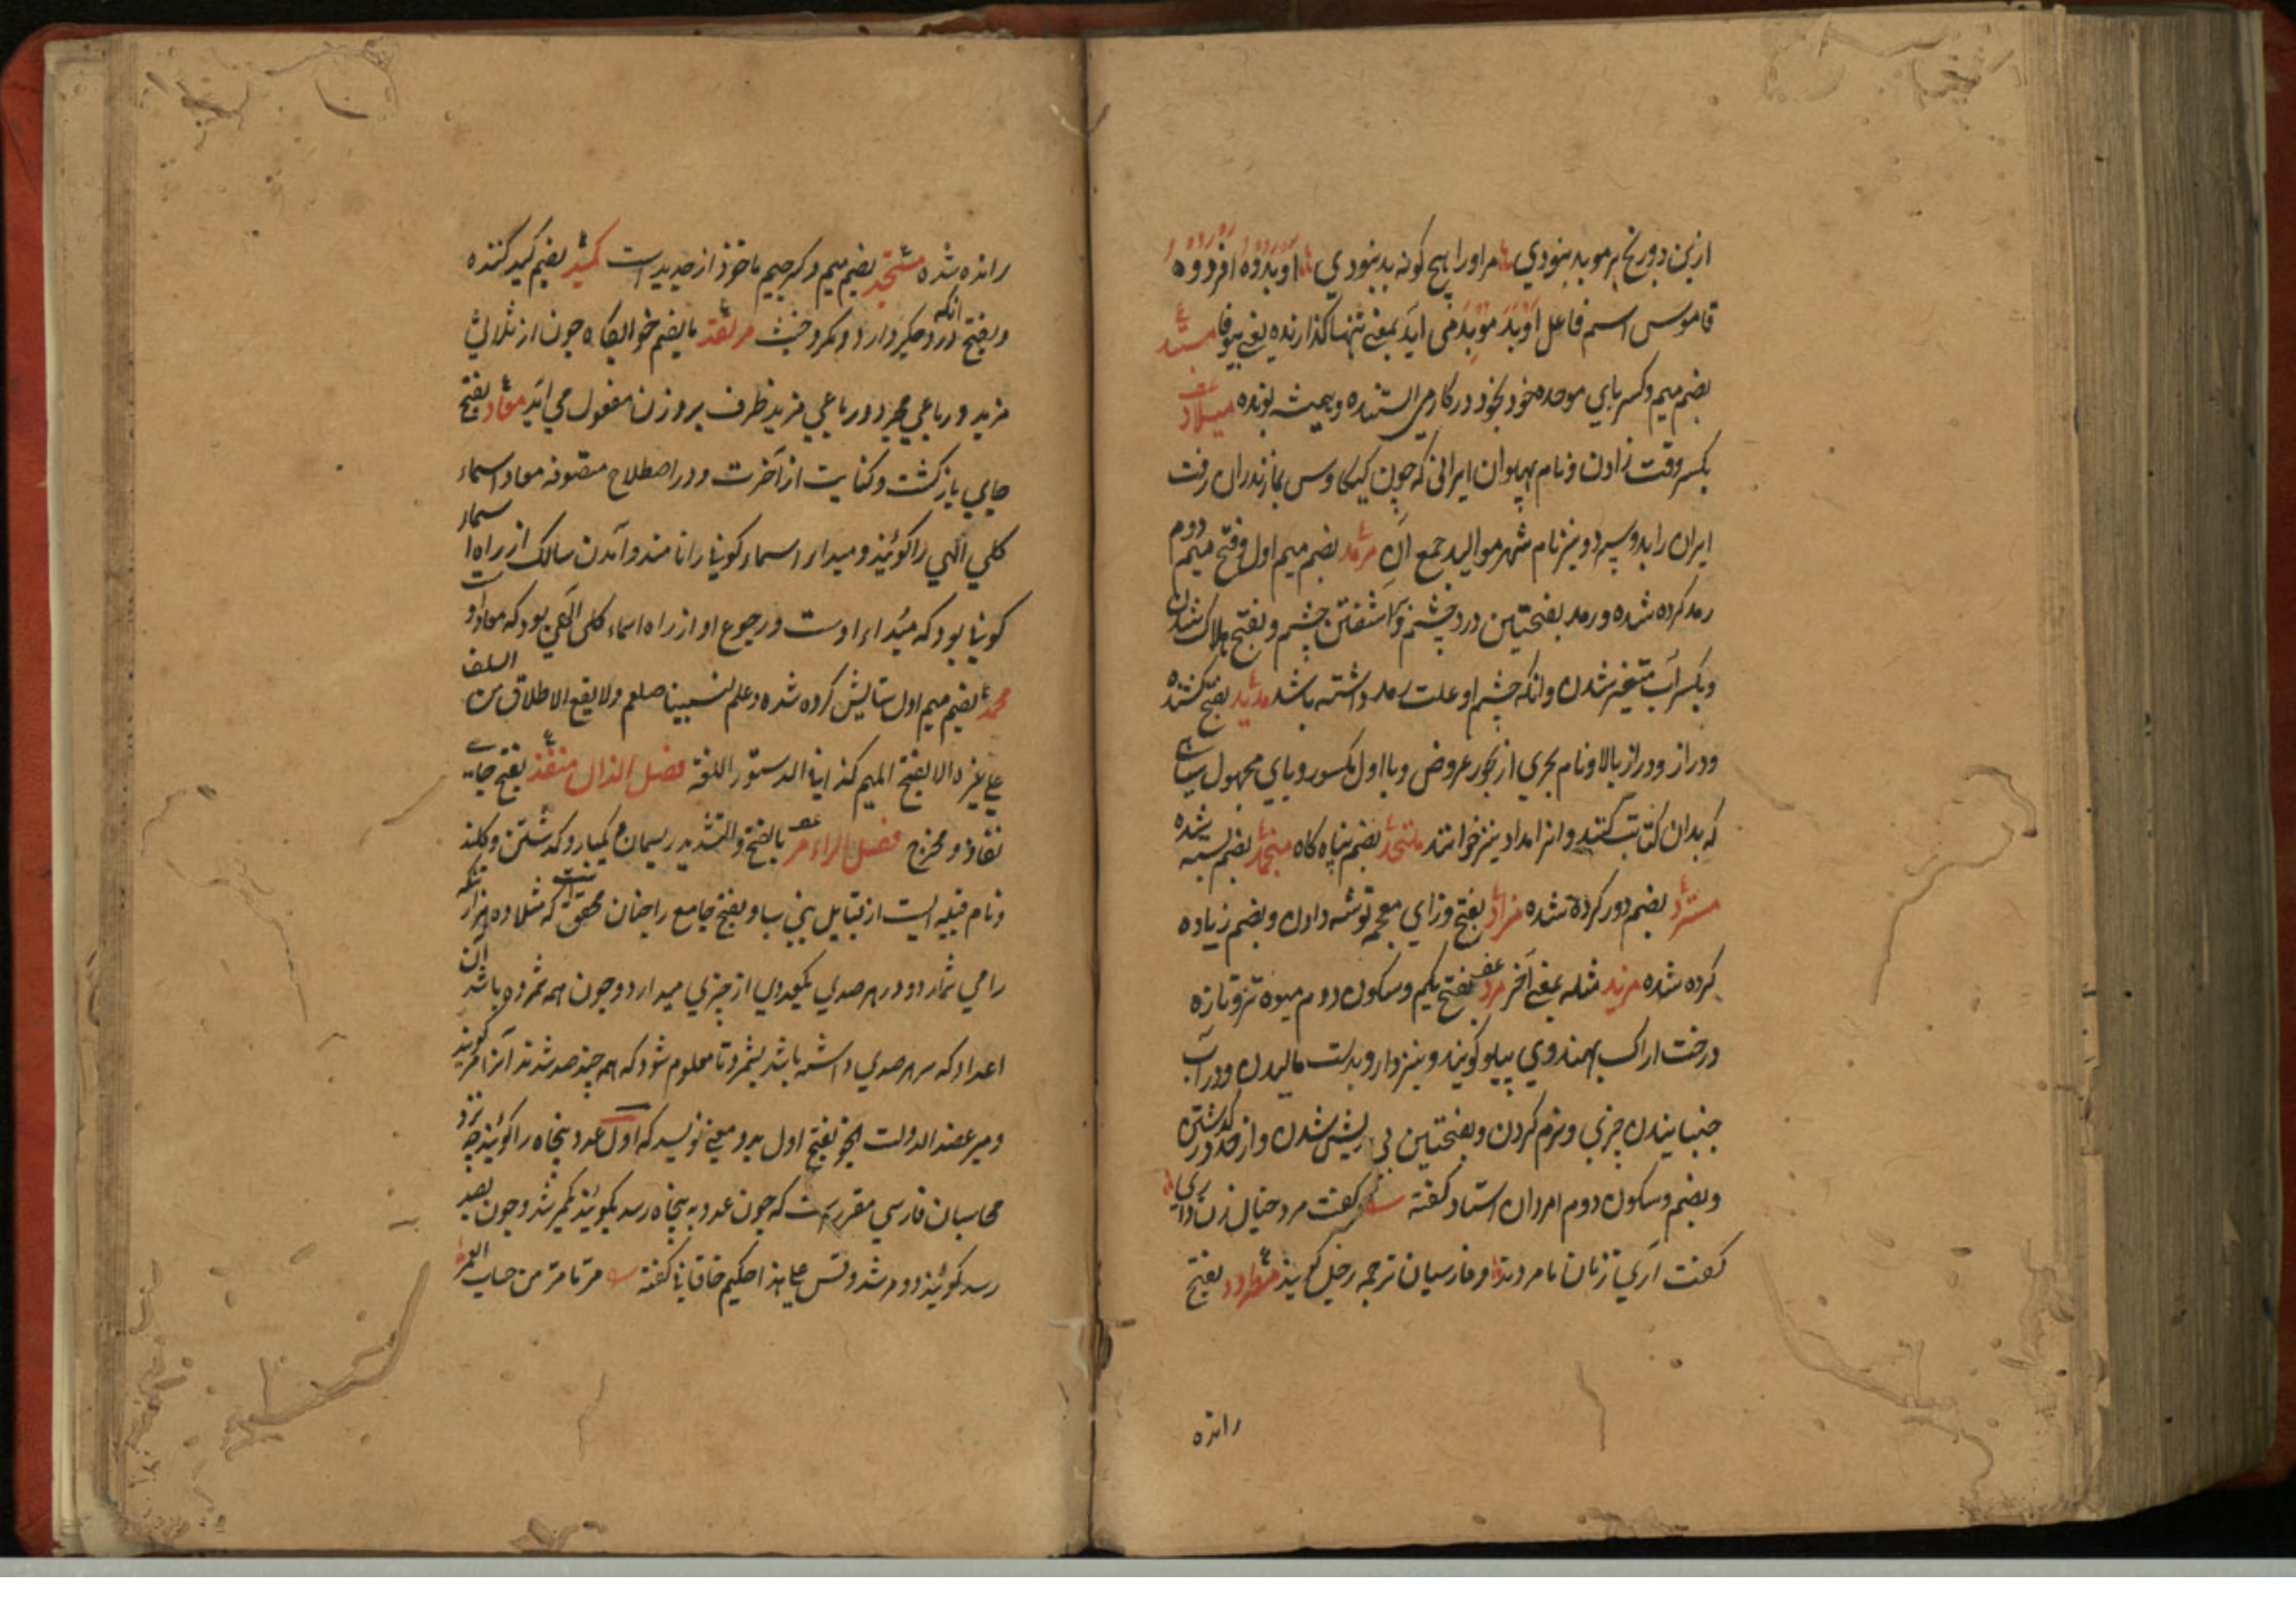 ازین دو رنج بر موبد بنودی مر او را هیچ کونه بد بنودی
قاموس اسم فاعل اَوبَدَ موبد می اید بمعنی تنها کذارنده یعنی بیوفا مستبد
بضم میم وکسر بای موحده خود بخود در کار می ایستنده وهمیشه بونده میلاد
بکسر وقت زادن ونام پهلوان ایرانی که چون کیکاوس بمازندران رفت
ایران را بدو سپرد ونیز نام شهر موالید جمع آن مرمد بضم میم اول وفتح میم دوم
رمد کرده شده ورمد بفتحتین درد چشم وآشفتن چشم وبفتح هلاک شدن
وبکسر آب متغیر شدن وانکه چشم او علت رمد داشته باشد مدید بفتح کشنده
ودراز ودراز بالا ونام بحری از بحور عروض وبا اول مکسور ویای مجهول سیاهی
که بدان کتابت کنند وانرا مداد نیز خوانند ملتحد بضم پناه کاه منجمد بضم بسته شده
مسترد بضم دور کرده شده مزاد بفتح وزای معجمه توشه دادن وبضم زیاده
کرده شده مزید مثله بمعنی آخر مرد بفتح یکم وسکون دوم میوه تر وتازه
درخت اراک بهندوی پیلو کویند ونیز دارو بدست مالیدن ودر آب
جنبانیدن چیزی ونرم کردن وبفتحتین بی ریش شدن واز حد در کذشتن
وبضم وسکون دوم امردان استاد کفته کفت مرد خیال زن داری
کفت آری زنان نا مردند وفارسیان ترجمه رجل کویند مطرود بفتح
رانده
رانده شده مستجد بضم میم وکسر جیم ماخوذ از جدید است کمید بضم کید کننده
وبفتح انکه درد جکر دارد ومکر وخبث مرقد بالضم خوابکاه چون از ثلاثی
مزید ورباعی مجرد ورباعی مزید ظرف بر وزن مفعول می آید معاد بفتح
جای بازکشت وکنایت از آخرت ودر اصطلاح متصوفه معاد اسماء
کلی الهی را کویند ومبداء اسماء کونیا را نامند وآمدن سالک از راه اسماء
کونیا بود که مبداء اوست ورجوع او از راه اسماء کلی الهی بود که معاد اوست
محمد بضم میم اول ستایش کرده شده وعلم لنبینا صلعم ولا یقع الاطلاق من السلف
علی غیره الا بفتح المیم کذا فی الدستور اللغة فصل الذال منفذ بفتح جای
نفاذ ومخرج فصل الراء مر بالفتح والتشدید ریسمان ویکبار وکذشتن وکلند
ونام قبیله ایست از قبایل بنی سبا وبفتح جامع راجنان محقق است که مثلا ده هزار تنکه
را می شمارد ودر هر صدی یکعددی از چیزی میدارد وچون همه شمرده باشد آن
اعداد که سر هر صدی داشته باشد بشمرد تا معلوم شود که همه چند صد شدند آنرا مر کویند
ومیر عضد الدولت انجو بفتح اول بدو معنی نویسد که اول عدد پنجاه را کویند چه نزد
محاسبان فارسی مقرر است که چون عدد به پنجاه رسد بکویند یکمر شد وچون بصد
رسد کویند دو مر شد وقس علی هذا حکیم خاقانی کفته مر تا مر من حساب العمر